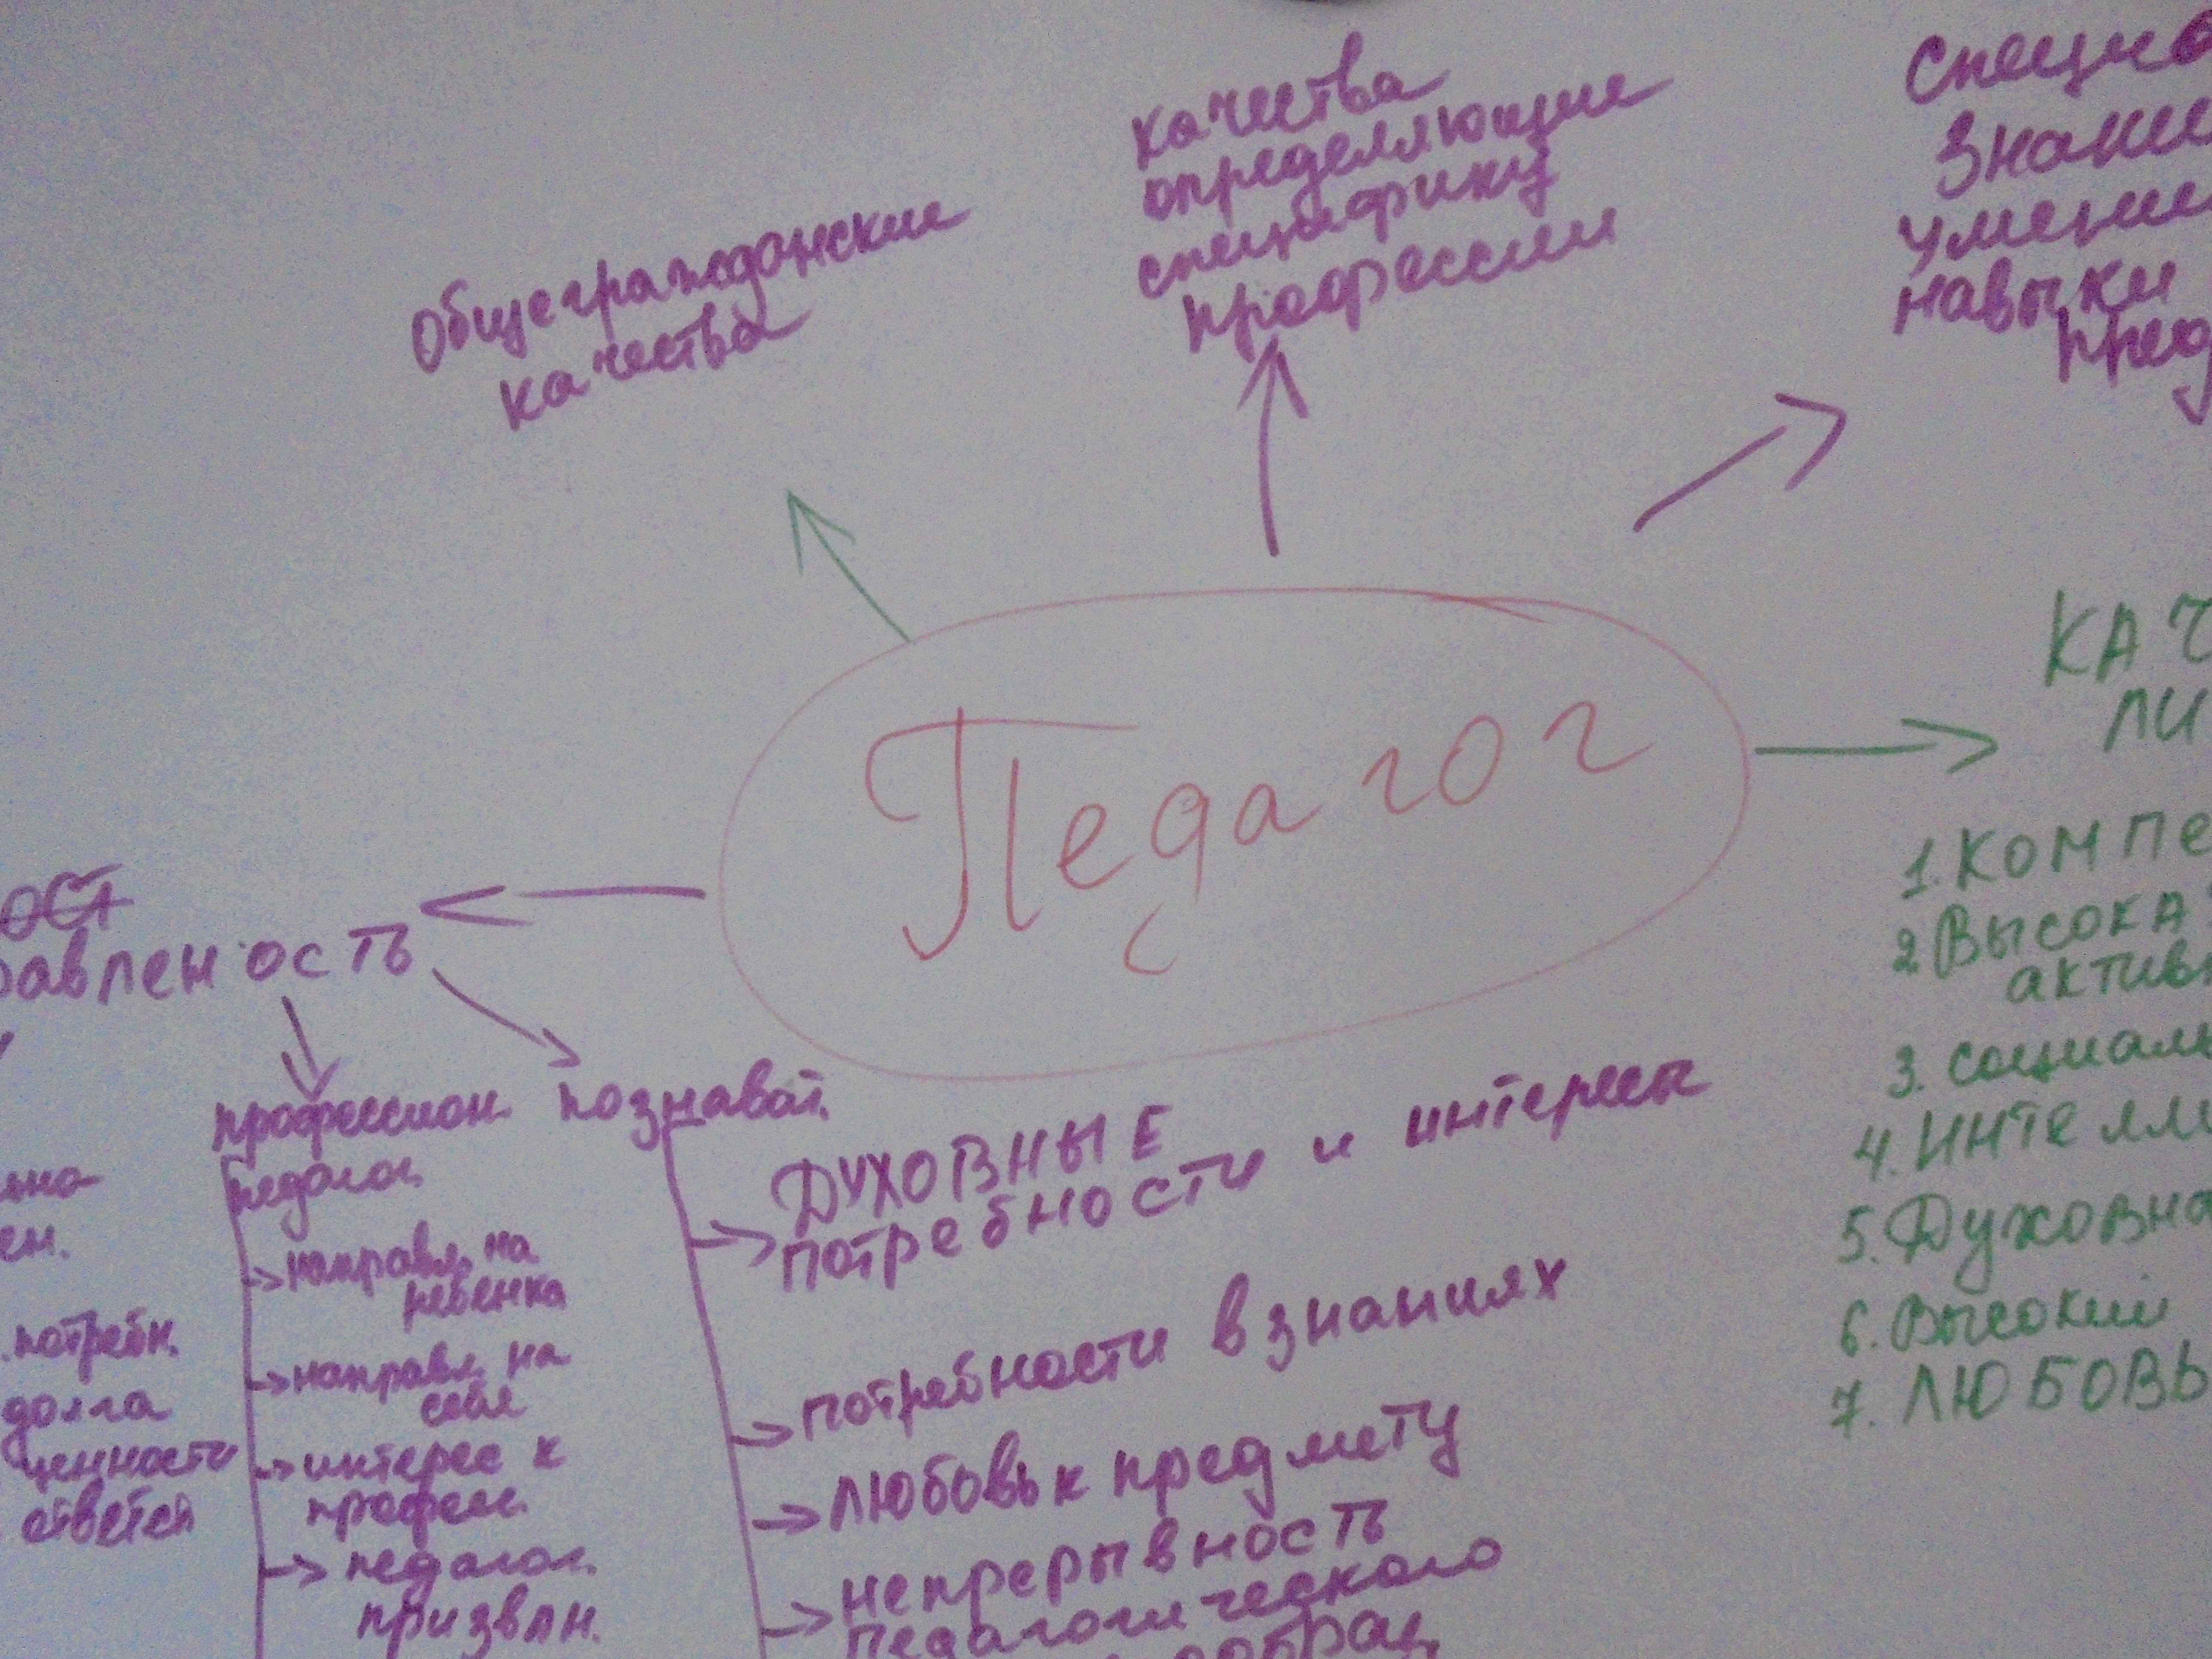 Общегражданские
качества
качества
определяющие
специфику
профессии
Специа
знание
умение
навыки
пред
Педагог
КАЧ
ЛИ
1. КОМПЕ
2 ВЫСОКА
активн
3. социаль
4. Интелли
5. Духовна
6. Высокий
7. ЛЮБОВЬ
ост
равленость
профессион.
педагог.
направл. на
ребенка
направл. на
себя
интерес к
професс.
педагог.
призвлн.
познават.
ДУХОВНЫЕ
потребности и интересы
потребности в знаниях
любовь к предмету
непрерывность
педагогического
льно
ен.
потребн.
долга
ценности